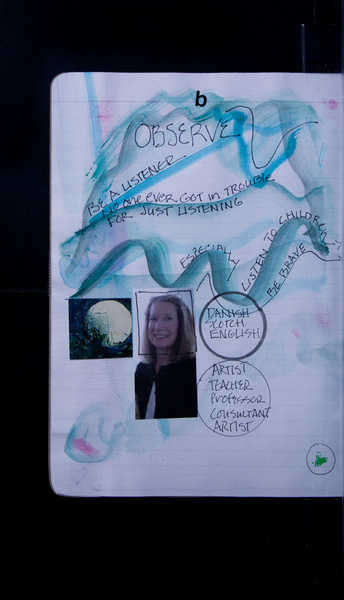 b
OBSERVE
BE A LISTENER
No one ever Got in TROUBLE
FOR JUST LISTENING
ESPECIALLY
LISTEN TO CHILDREN
BE BRAVE
DANISH
SCOTCH
ENGLISH
ARTIST
TEACHER
PROFESSOR
CONSULTANT
ARTIST